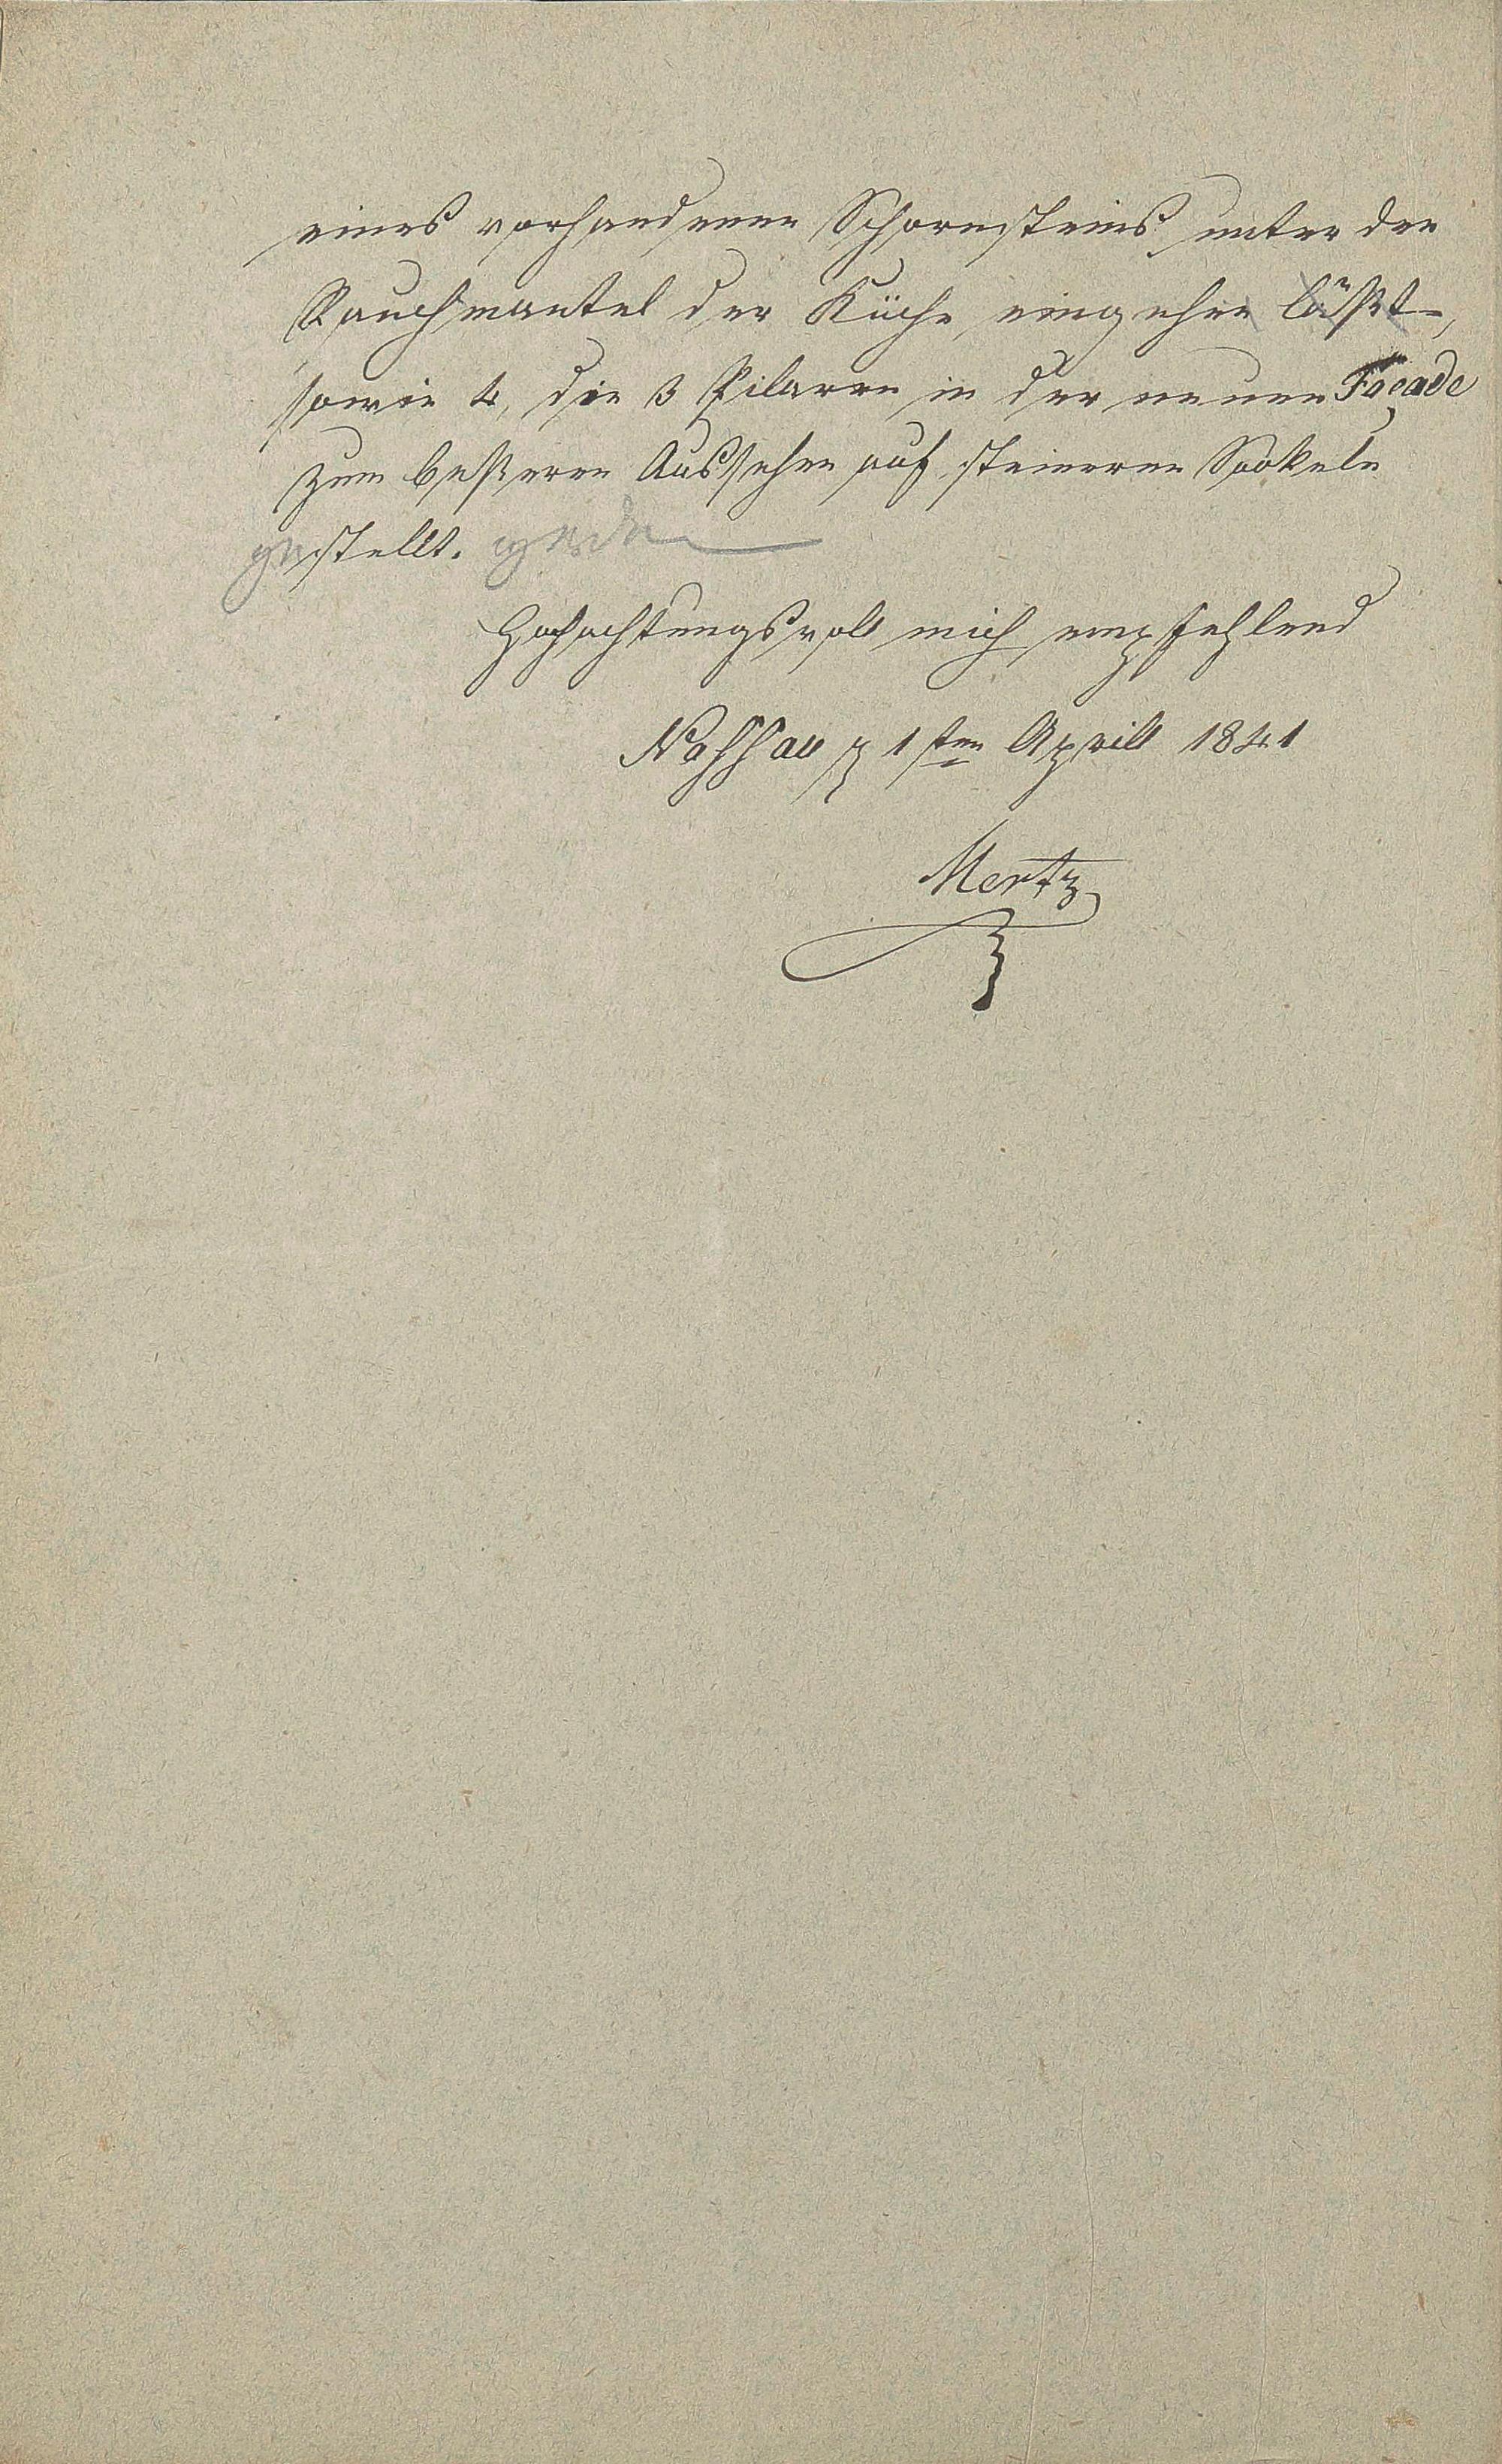 eines vorhandenen Schornsteins unter den
Rauchmantel der Küche, eingehen läßt,
sowie 4, die 3 Pilaren in der neuen Façade
zum beßeren Aussehen auf steineren Sockeln
gestellt. werden
Hochachtungsvoll mich empfehlend
Nassau 1sten Aprill 1841
Mertz